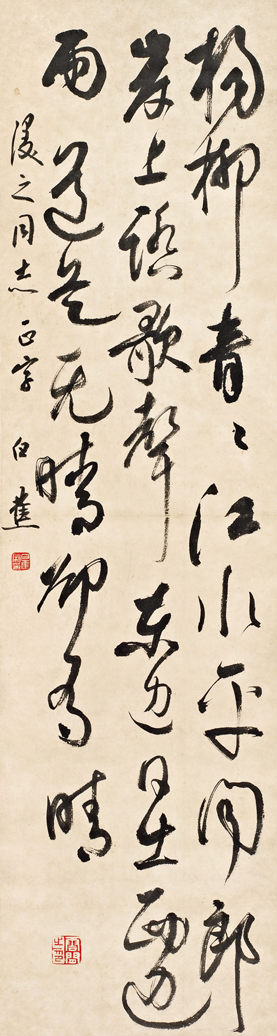 楊柳青〻江水平闻郎
岸上踏歌聲东边日出西边
雨道是无晴却有晴
漫之同志正字 白蕉